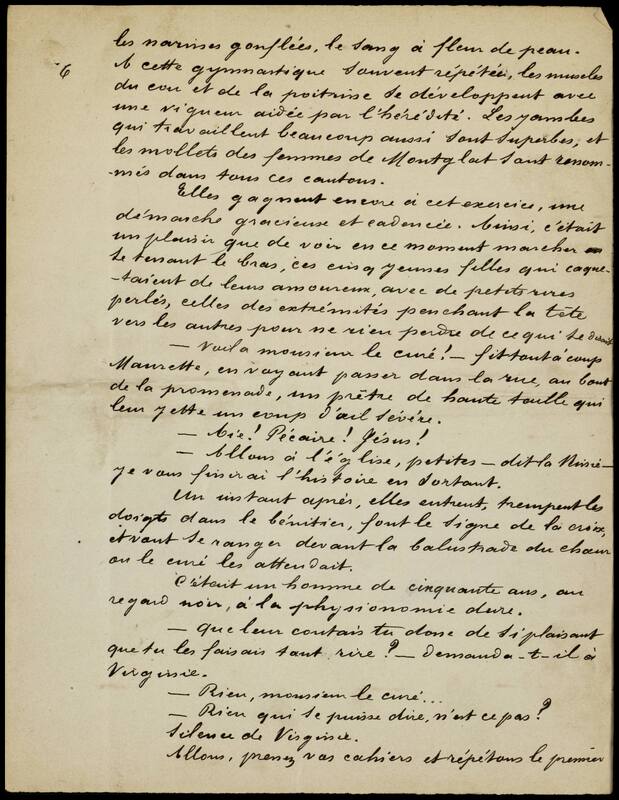 6
les narines gonflées, le sang à fleur de peau.
A cette gymnastique souvent répétée, les muscles
du cou et de la poitrine se développent avec
une vigueur aidée par l'hérédité. Les jambes
qui travaillent beaucoup aussi sont superbes, et
les mollets des femmes de Montglat sont renom-
-més dans tous ces cantons.
Elles gagnent encore à cet exercice, une
démarche gracieuse et cadencée. Ainsi, c'était
un plaisir que de voir en ce moment marcher
se tenant le bras, ces cinq jeunes filles qui caque-
-taient de leurs amoureux, avec de petits rires
perlés, celles des extrémités penchant la tête
vers les autres pour ne rien perdre de ce qui se disait
— Voilà monsieur le curé! — fit tout à coup
Maurette, en voyant passer dans la rue, au bout
de la promenade, un prêtre de haute taille qui
leur jette un coup d'œil sévère.
— Aïe! Pécaïre! Jésus!
— Allons à l'église, petites — dit la Ninie —
je vous finirai l'histoire en sortant.
Un instant après, elles entrent, trempent les
doigts dans le bénitier, font le signe de la croix,
et vont se ranger devant la balustrade du chœur
où le curé les attendait.
C'était un homme de cinquante ans, au
regard noir, à la physionomie dure.
— Que leur contais tu donc de si plaisant
que tu les faisais tant rire? — demanda-t-il à
Virginie.
— Rien, monsieur le curé...
— Rien qui se puisse dire, n'est ce pas?
Silence de Virginie.
Allons, prenez vos cahiers et répétons le premier